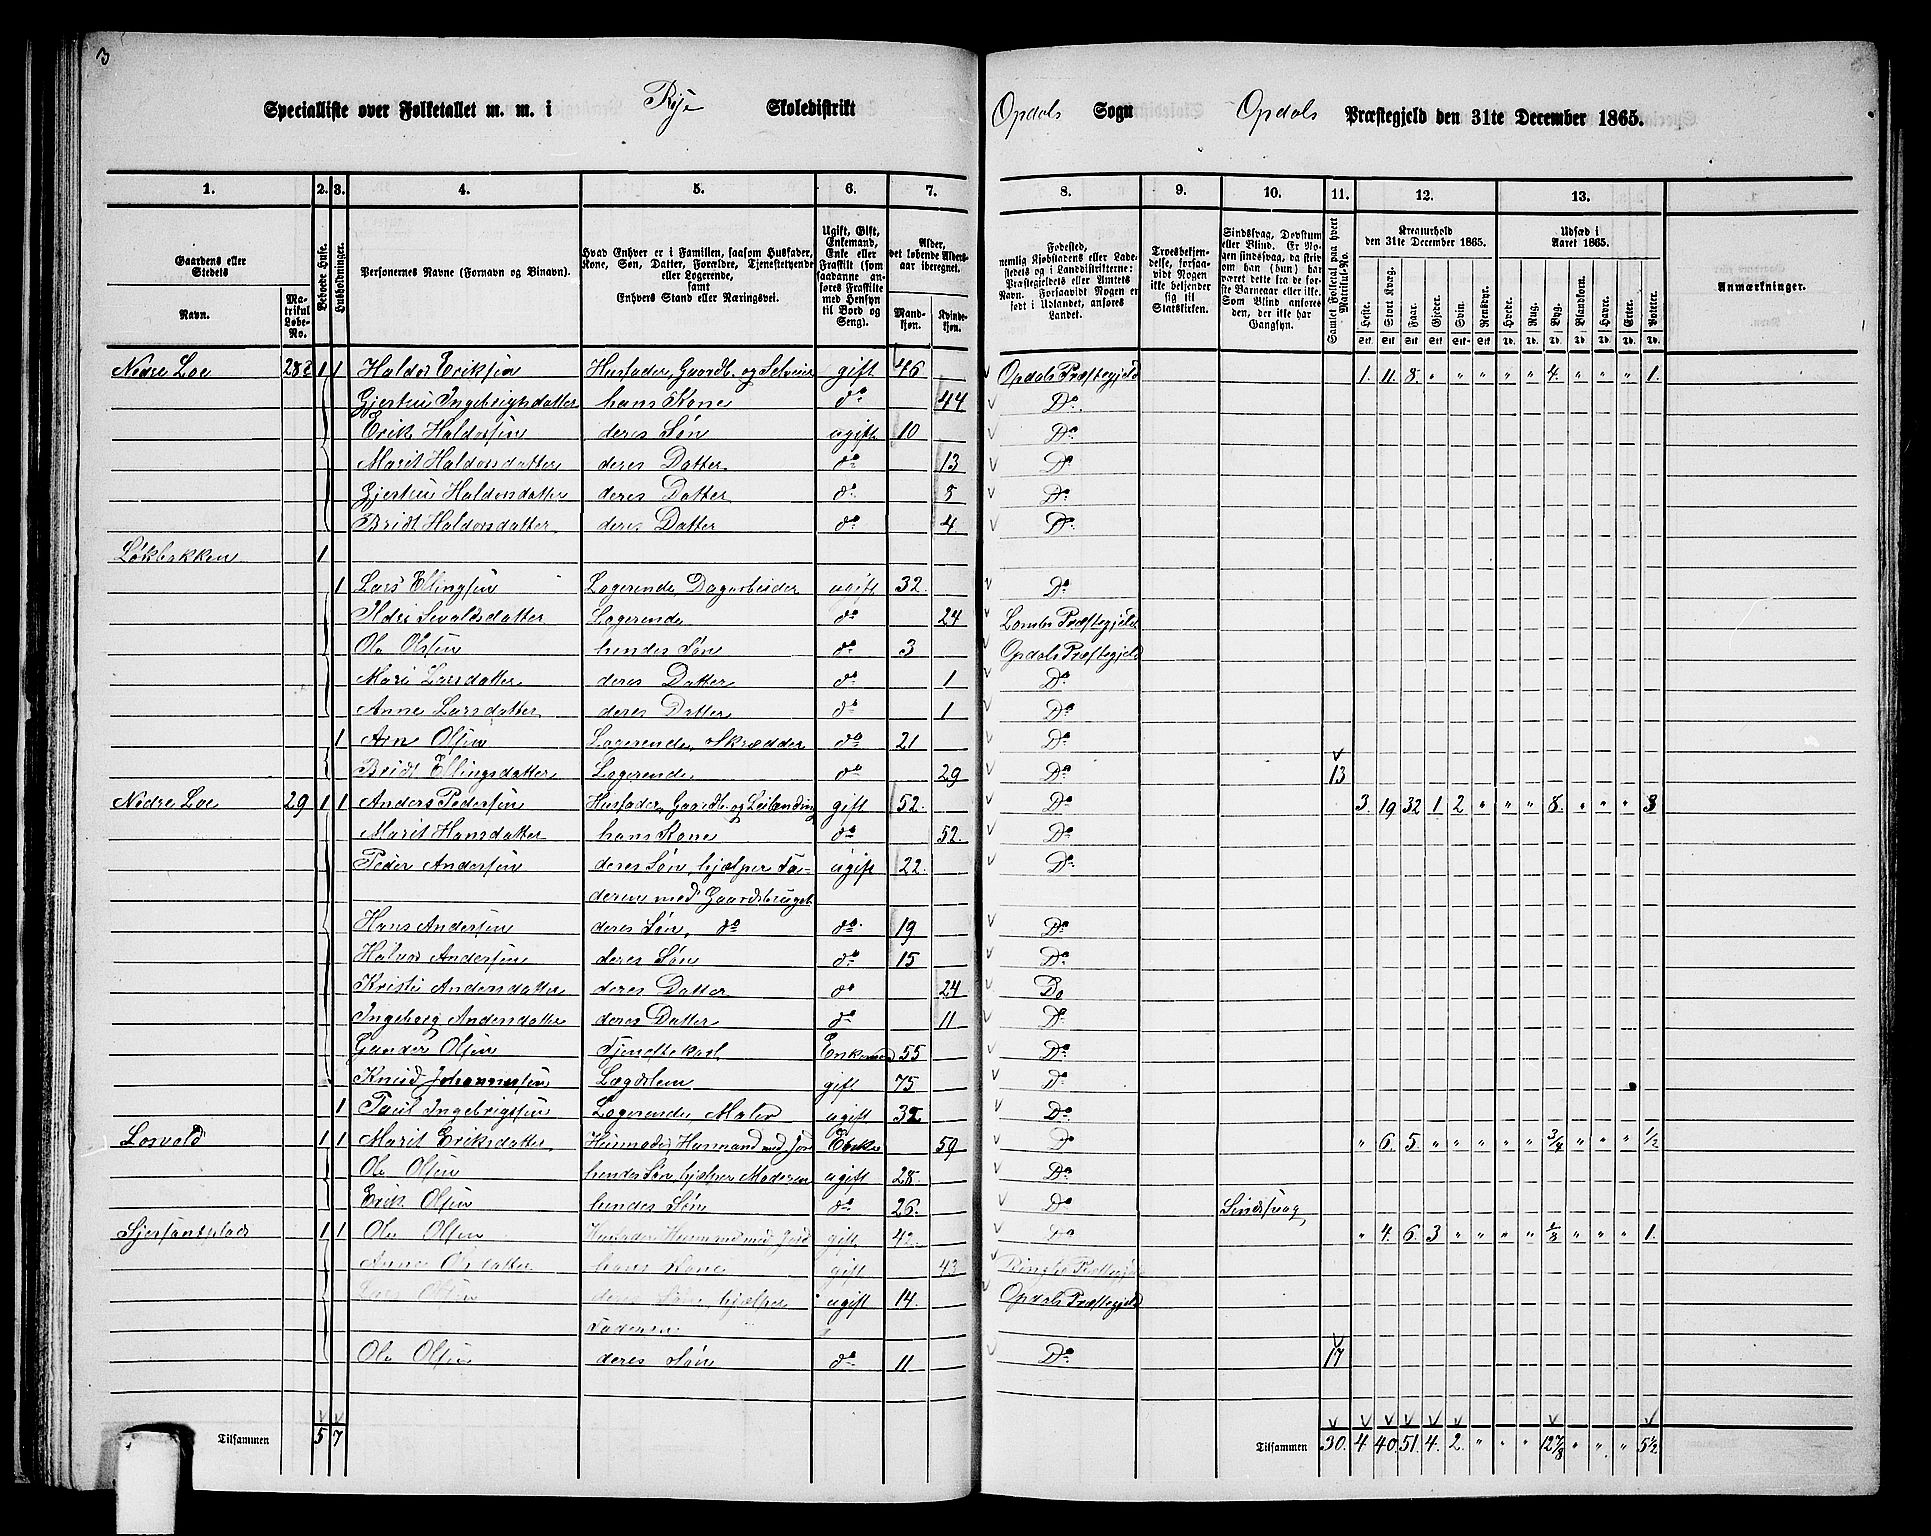 3
Specialliste over Folketallet m. m. i Rise Skoledistrikt Opdals Sogn Opdals Præstegjeld den 31te December 1865.
1. 2. 3. 4. 5. 6. 7. 8. 9. 10. 11. 12. 13.
Gaardens eller Stedets Navn. Matrikul Løbe-No. Beboede Huse. Husholdninger. Personernes Navne (Fornavn og Binavn). Hvad Enhver er i Familien, saasom Husfader, Kone, Søn, Datter, Forældre, Tjenestetyende eller Logerende, samt Enhvers Stand eller Næringsvei. Ugift, Gift, Enkemand, Enke eller Fraskilt (som saadanne anføres Fraskilte med Hensyn til Bord og Seng). Alder, det løbende Alders-aar iberegnet. Mandkjøn. Kvindekjøn. Fødested, nemlig Kjøbstadens eller Ladestedets og i Landdistrikterne: Præstegjeldets eller Amtets Navn. Forsaavidt Nogen er født i Udlandet, anføres Landet. Troesbekjendelse, forsaavidt Nogen ikke bekjender sig til Statskirken. Sindssvag, Døvstum eller Blind. Er Nogen sindssvag, da skriv om han (hun) har været dette fra de første Barneaar eller ikke. Som Blind anføres den, der ikke har Gangsyn. Samlet Folketal paa hvert Matrikul-No. Kreaturhold den 31te December 1865. Heste. Stort Kvæg. Faar. Gjeder. Svin. Rensdyr. Udsæd i Aaret 1865. Hvede. Rug. Byg. Blandkorn. Havre. Erter. Poteter. Anmærkninger.
Nedre Loe 1 1 Haldo Eriksen Husfader, Gaardb. og Selveier gift 46 Opdals Præstegjeld 1. 11. 8. " " " " " 4. " " " 1.
Gjertru Ingebrigtsdatter hans Kone do 44 Do.
Erik Haldorsen deres Søn ugift 10 Do.
Marit Haldorsdatter deres Datter do 13 Do
Gjertru Haldorsdatter deres Datter do Do.
Bridt Haldorsdatter deres Datter do 4 Do.
Løkbakken 1
1 Lars Ellingsen Logerende Dagarbeider ugift 32. Do
Ildri Sevaldsdatter Logerende do 24 Præstegjeld
Ole Olsen hendes Søn do 3 Opdals Præstegjeld
Mari Larsdatter deres Datter do 1 Do
Anne Larsdatter deres Datter do 1 Do
1 Arn Olsen Logerende, Skrædder do 21 Do
Bridt Ellingsdatter Logerende do 29 Do 13
Nedre Loe 29 1 1 Anders Pedersen Husfader, Gaardb. og Leilænding gift 52. Do 3. 19 32 1 2 " " " 8. " " " 3
Marit Hansdatter hans Kone do 52. Do
Peder Andersen deres Søn, hjælper Fa- ugift 22. Do
deren med Gaardsbruget
Hans Andersen deres Søn, do do 19 Do
Halvor Andersen deres Søn do 15 Do
Kristi Andersdatter deres Datter do 24 Do
Ingeborg Andersdatter deres Datter do 11 Do
Olsen Tjenestekarl Enkemand 55 Do
Knud Johannessen Lægdslem gift 75 Do
1 Paul Ingebrigtsen Logerende, Maler ugift 32 Do.
Losvold 1 1 Marit Eriksdatter Husmoder, Husmand med Jord Enke 59 Do " 6. 5. " " " " " 3/4 " " " 1/2
Ole Olsen hendes Søn, hjælper Moderen ugift 28. Do
Erik Olsen hendes Søn do 26. Do Sindssvag
1 1 Ole Olsen Husfader Husmand med Jord gift Do " 4. 6. 3 " " " " 1/8 " " " 1.
Anne hans Kone gift 43 Præstegjeld
Olsen deres Søn, hjælper ugift 14. Opdals Præstegjeld
Faderen
Ole Olsen deres Søn do 11 Do 17
Tilsammen 5 7 Tilsammen 30. 4. 40. 51. 4. 2. " " " 12 7/8 " " " 5 1/2